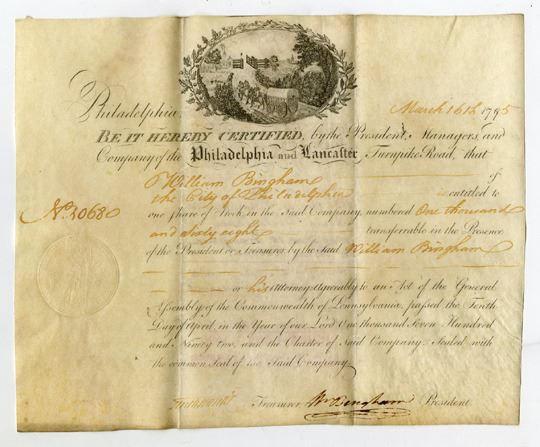 Philadelphia, March 16th 1795
BE IT HEREBY CERTIFIED, by the President, Managers, and
Company of the Philadelphia and Lancaster Turnpike Road, that
William Bingham of
the City of Philadelphia is entitled to
No. 1068 one share of Stock in the Said Company, numbered One thousand
and sixty eight transferrable in the Presence
of the President or Treasurer by the Said William Bingham
or his Attorney Agreeably to an Act of the General
Assembly of the Commonwealth of Pennsylvania, passed the Tenth
Day of April, in the Year of our Lord One thousand Seven Hundred
and Ninety two, and the Charter of Said Company. Sealed with
the common Seal of the Said Company
Treasurer Wm Bingham President